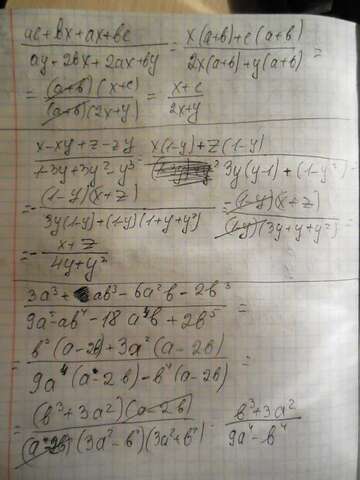 ac+bx+ax+bc / ay+2bx+2ax+by = x(a+b)+c(a+b) / 2x(a+b)+y(a+b) =
= (a+b)(x+c) / (a+b)(2x+y) = x+c / 2x+y
x-xy+z-zy / 1-3y+3y²-y³ x(1-y)+z(1-y) / 3y(y-1)+(1-y³)
= - (1-y)(x+z) / 3y(1-y)+(1-y)(1+y+y²) = (1-y)(x+z) / (1-y)(3y+y+y²) =
= - x+z / 4y+y²
3a³+ab³-6a²b-2b³ / 9a⁵-ab⁴-18a⁴b+2b⁵ =
= b³(a-2b)+3a²(a-2b) / 9a⁴(a-2b)-b⁴(a-2b) =
= (b³+3a²)(a-2b) / (a-2b)(3a²-b²)(3a²+b²) = b³+3a² / 9a⁴-b⁴